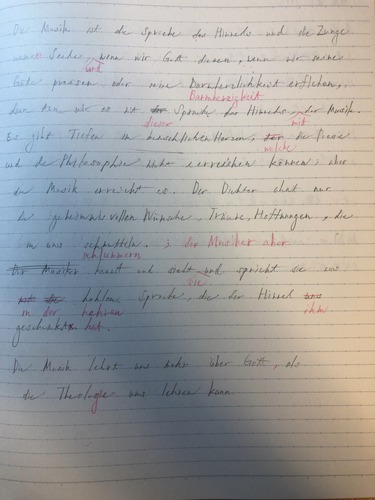 Die Musik ist die Sprache des Himmels und die Zunge
unserer Seelen, wenn wir Gott dienen, wenn wir seine
und
Güte preisen oder seine Barmherzlichkeit erflehen,
Barmherzigkeit
denn tun wir es mit der Sprache des Himmels, der Musik.
dieser mit
Es gibt Tiefen im menschlichen Herzen, die Poesie
welche
und die Philosophie nicht erreichen können; aber
die Musik erreicht es. Der Dichter ahnt nur
die geheimnisvollen Wünsche, Träume, Hoffnungen, die
in uns schmutteln. ; der Musiker aber
schlummern
Der Musiker und und spricht sie aus
sie
mit der Sprache, die der Himmel uns
in der ihm
geschenkt hat.
Die Musik lehrt uns mehr über Gott, als
die Theologie uns lehren kann